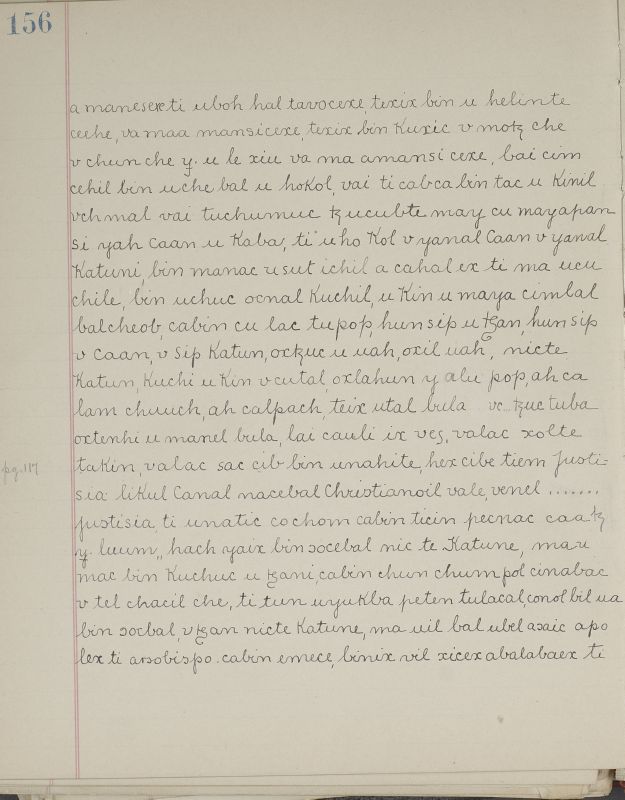 156
a manesexe ti uboh hal tavocexe texix bin u helinte
ceehe, va maa mansicexe, texix bin Kuxic v motꜩ che
v chun che y. u le xiu va ma amansi cexe, bai cim
cehil bin uche bal u hokol, vai ti cab ca bin tac u Kinil
vchmal vai tuchumuc ꜩucubte may cu mayapan
si yah Caan u Kaba, ti u ho Kol v yanal Caan v yanal
Katuni, bin manac u sut ichil a cahal ex ti ma ucu
chile, bin uchuc ocnal Kuchil, u Kin u maya cimlal
balcheob, cabin cu lac tu pop, hun sip u ꜩan, hun sip
v Caan, v sip Katun, oxꜩuc u uah, oxil uah, nicte
Katun, Kuchi u Kin v cutal, oxlahun y alu pop, ah ca
lam chuuch, ah calpach, teix utal bula vc ꜩuc tuba
oxtenhi u manel bula, lai cauli ix ves, valac xolte
pg. 117
takin, valac sac cib bin unahite, hex cibe tiem Justi-
sia likul Canal nacebal Christianoil vale, venel .......
justisia ti unatic cochom cabin ticin pecnac caaꜩ
y. luum, hach yaix bin socebal nic te Katune, ma u
mac bin Kuchuc u ꜩani, cabin chun chum pol cinabac
v tel chacil che, ti tun uyukba peten tulacal, conol bil ua
bin socbal, v ꜩan nicte Katune, ma uil bal ubel asaic apo
lex ti arsobispo. cabin emece, binix vil xicex abalabaex ti